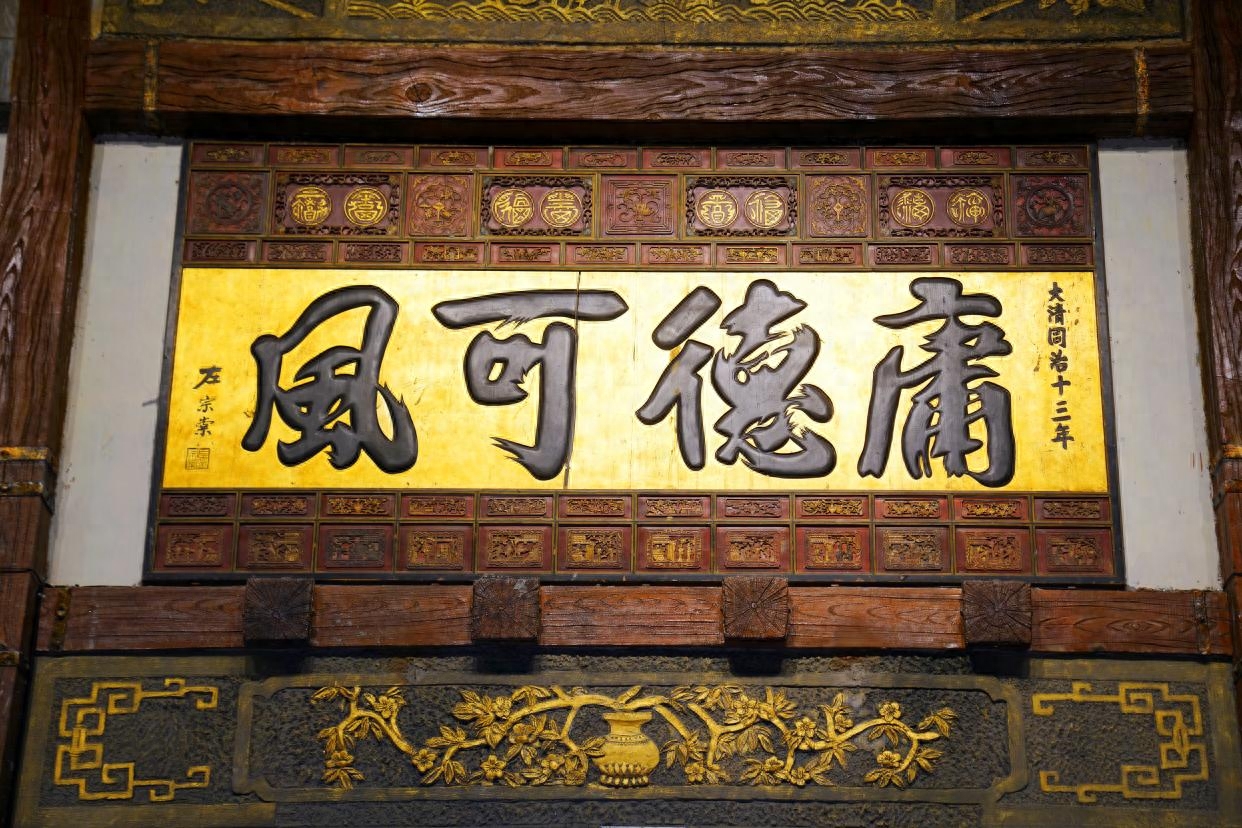 大清同治十三年
庸德可風
左宗棠